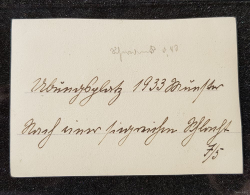 Übungsplatz 1933 Münster
Nach einer siegreichen Schlacht
7/5